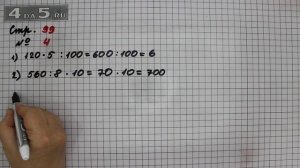 4DA5.RU
Стр. 99
№ 4
1) 120 · 5 : 100 = 600 : 100 = 6
2) 560 : 8 · 10 = 70 · 10 = 700